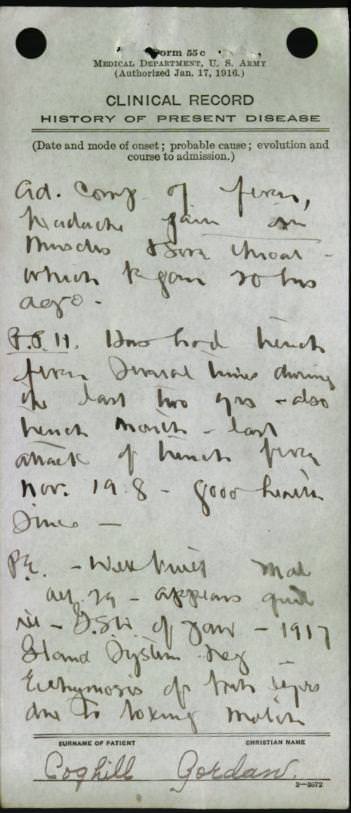 Form 55 c
MEDICAL DEPARTMENT, U. S. ARMY
(Authorized Jan. 17, 1916.)
CLINICAL RECORD
HISTORY OF PRESENT DISEASE
(Date and mode of onset; probable cause; evolution and
course to admission.)
Ad. Comp of fever,
headache pain in
muscles & sore throat -
which began 20 hrs
ago -
P.P.H. Has had trench
fever several times during
the last two yrs - also
trench mouth - last
attack of trench fever
Nov. 1918 - good health
since -
P.E. - Well built Mal
aet. 29 - appears quite
ill - G.S.W. of jaw - 1917
Gland System Neg -
Ecchymosis of both eyes
due to boxing match
SURNAME OF PATIENT CHRISTIAN NAME
Coghill Gordan.
2-3072